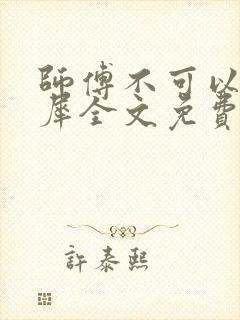 師傅不可以
犀全文免費
許泰熙